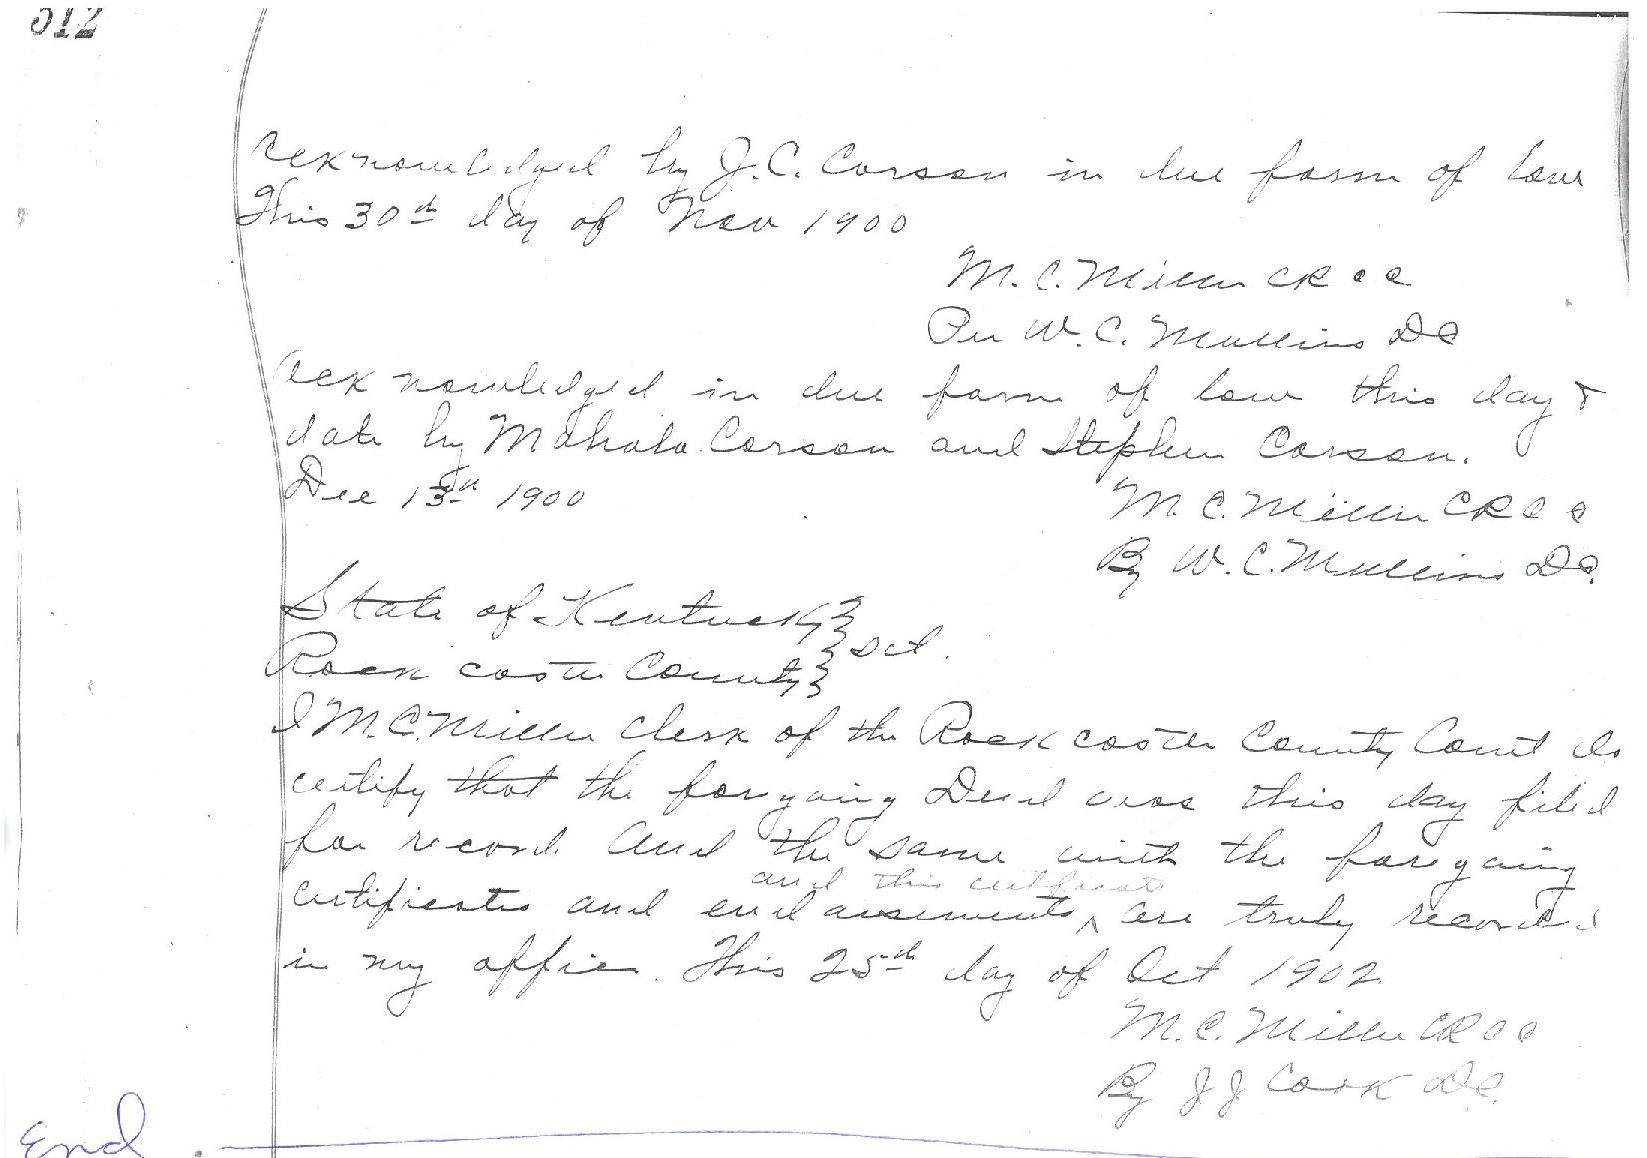 512
Acknowledged by J.C. Carson in due form of law
This 30th day of Nov 1900
M.C. Miller CRCC
Per W.C. Mullins DC
Acknowledged in due form of law this day &
date by Mahala Carson and Stephen Carson.
Dec 13th 1900
M.C. Miller CRCC
By W.C. Mullins DC.
State of Kentucky
Rock castle County } Sct.
I M.C. Miller Clerk of the Rock castle County Court do
certify that the forgoing Deed was this day filed
for record. And the same with the forgoing
and this certificate
certificates and endorsements ^ are truly recorded
in my office. This 25th day of Oct 1902
M.C. Miller CRCC
By J J Cook DC.
End